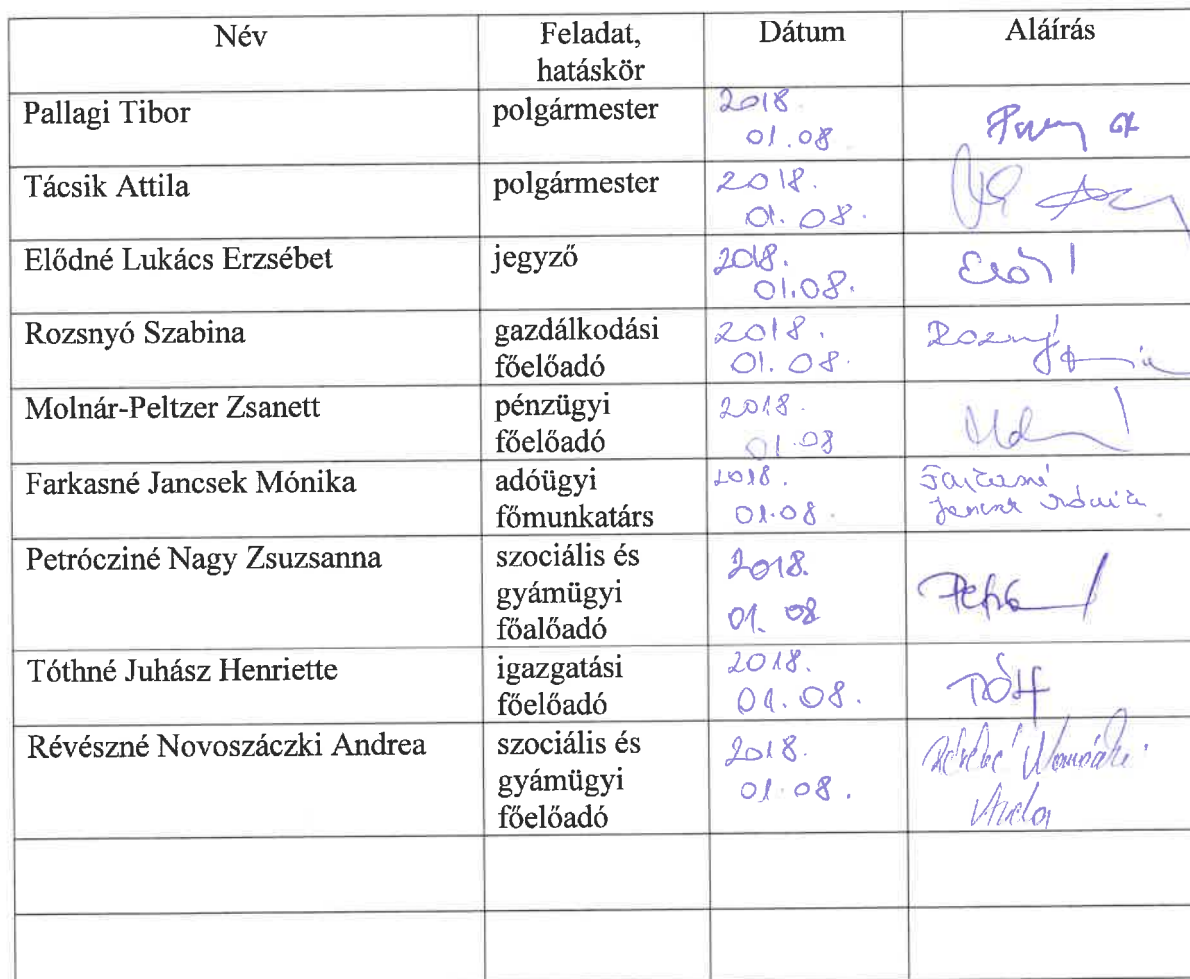 Név Feladat, Dátum Aláírás
hatáskör
Pallagi Tibor polgármester 2018.
01.08
Tácsik Attila polgármester 2018.
01.08.
Elődné Lukács Erzsébet jegyző 2018.
01.08.
Rozsnyó Szabina gazdálkodási 2018.
főelőadó 01.08.
Molnár-Peltzer Zsanett pénzügyi 2018.
főelőadó 01.08
Farkasné Jancsek Mónika adóügyi 2018. Farkasné
főmunkatárs 01.08. Jancsek Mónika
Petrócziné Nagy Zsuzsanna szociális és 2018.
gyámügyi
főalőadó 01.08
Tóthné Juhász Henriette igazgatási 2018.
főelőadó 01.08.
Révészné Novoszáczki Andrea szociális és 2018.
gyámügyi 01.08.
főelőadó Andrea